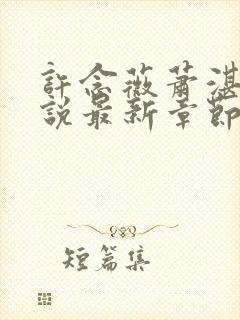 許念薇蕭湛
說最新章節
短篇集